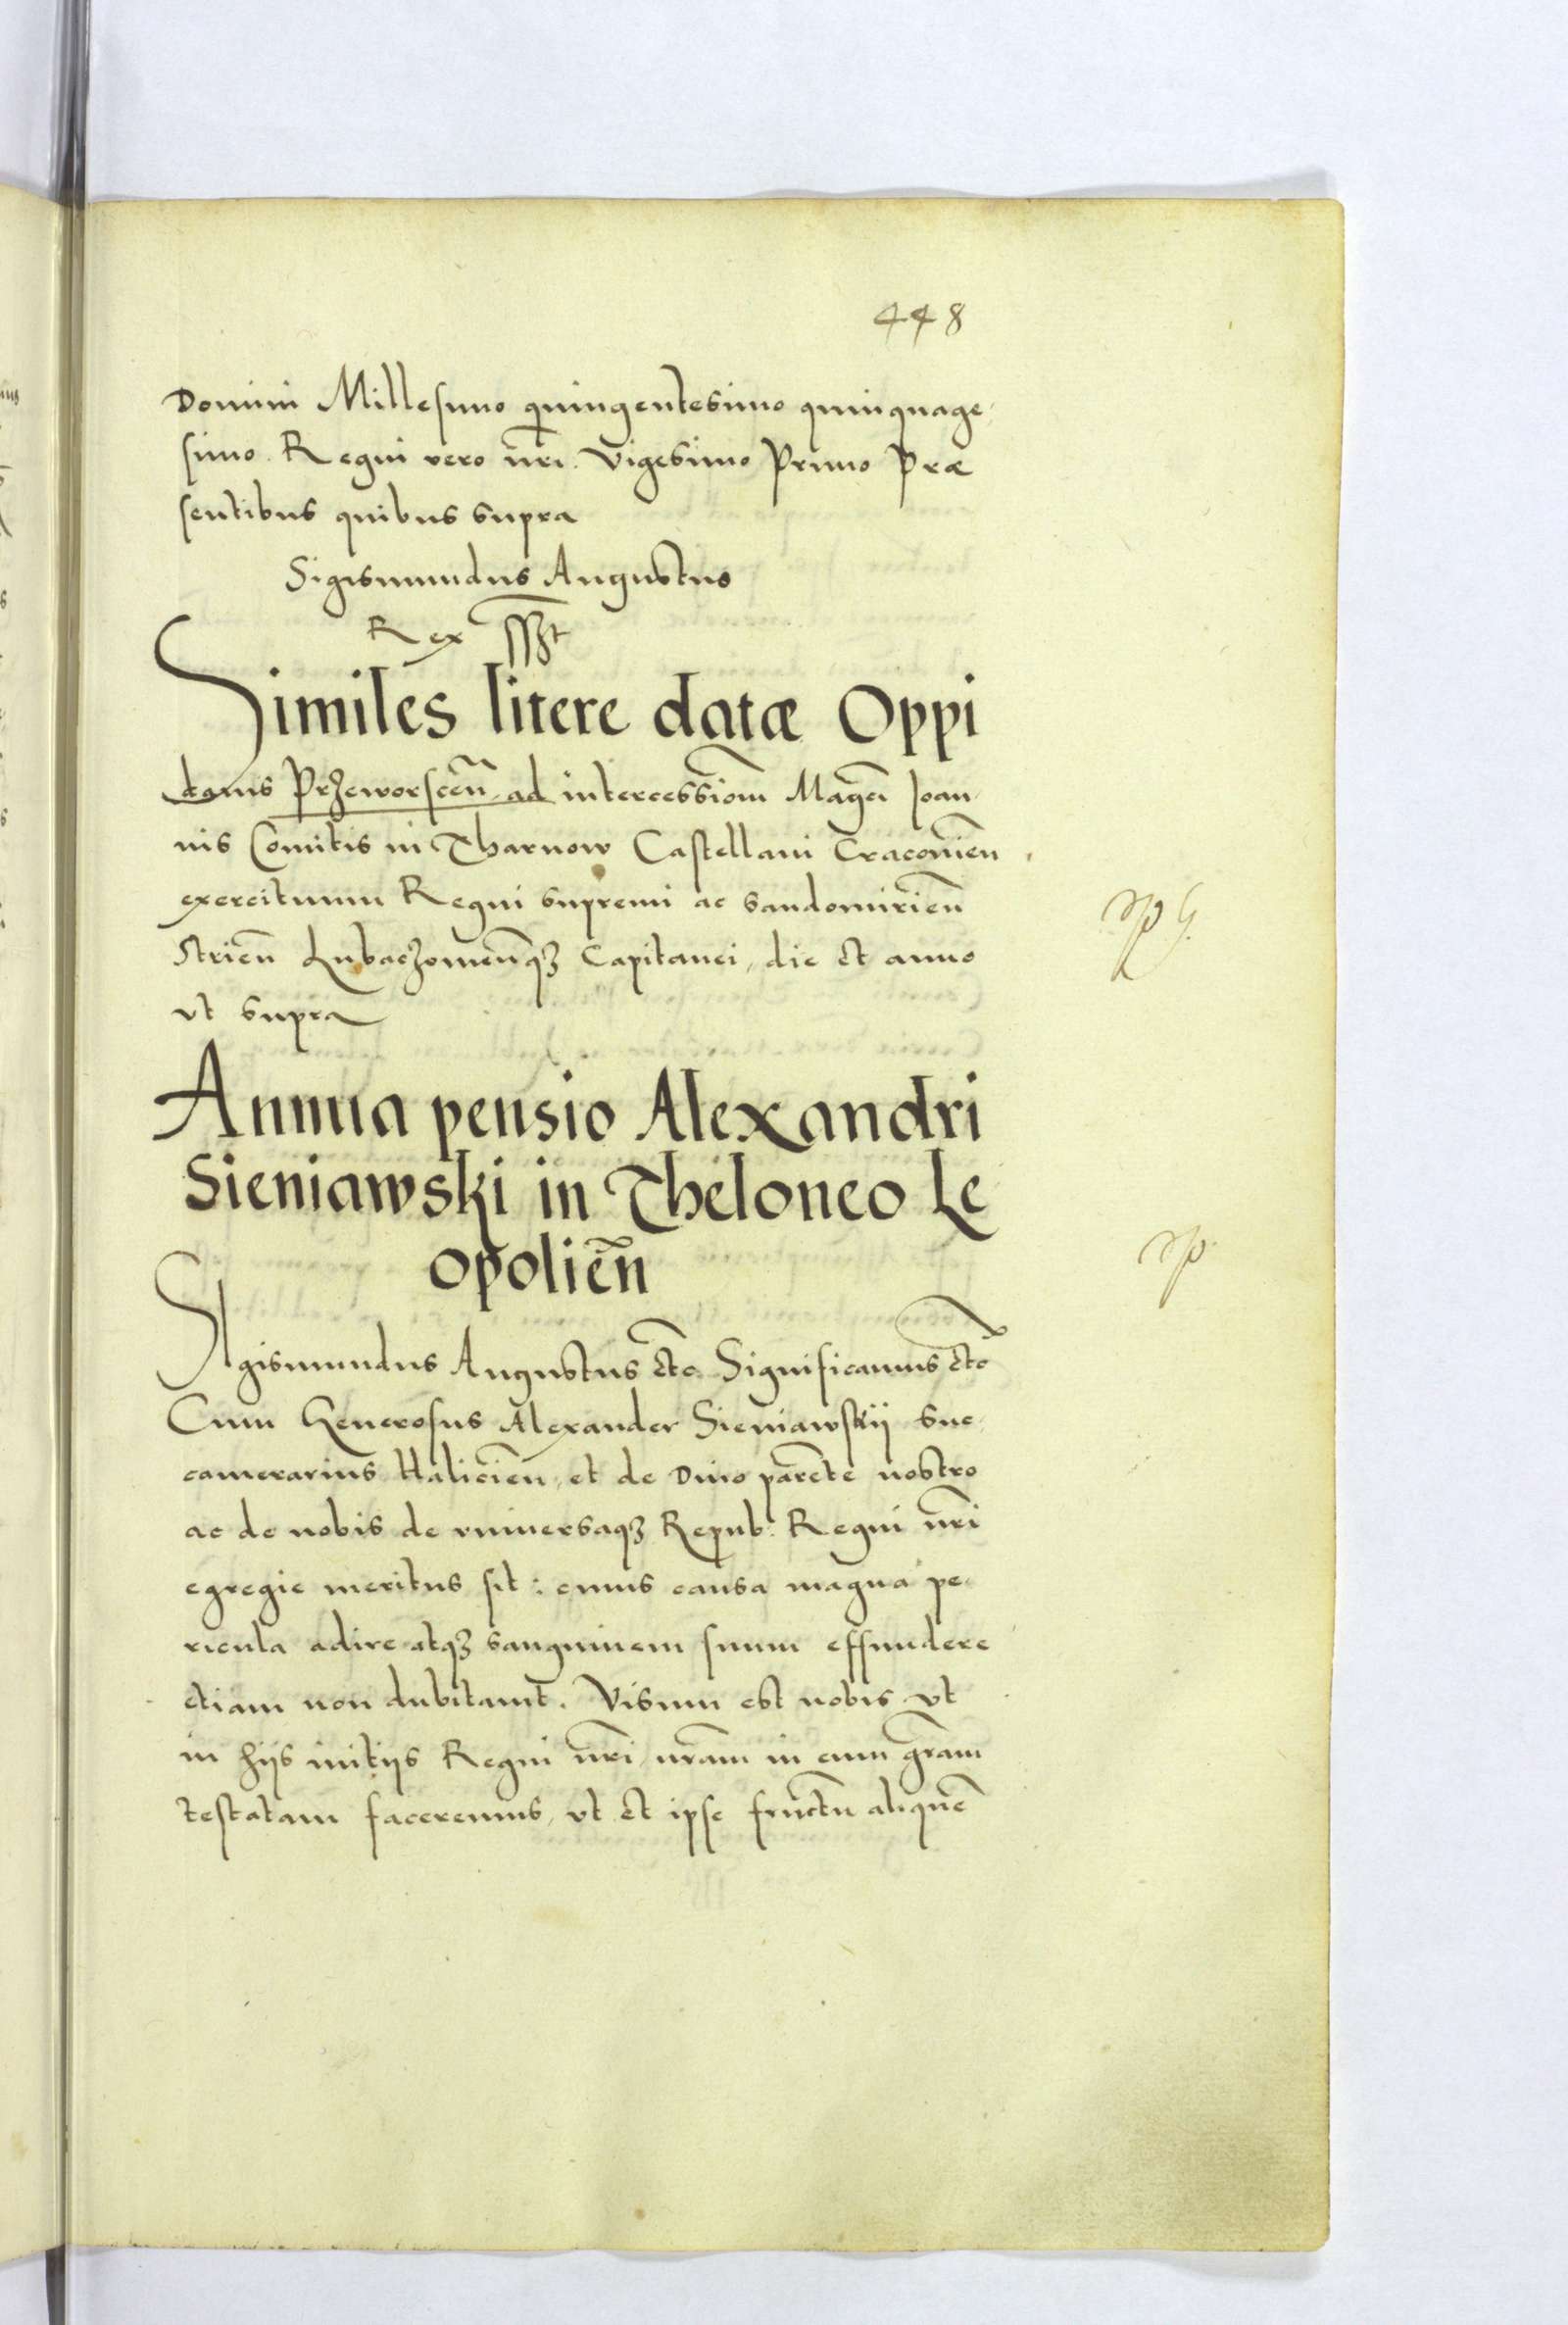 448
Domini Millesimo quingentesimo quinquage
simo. Regni vero nr̃i. Vigesimo Primo Præ
sentibus quibus supra
Sigismundus Augustus
Rex sszt
Similes litere datæ Oppi
danis Przeworsceñ ad intercessiom̃ Magci Joan
nis Comitis in Tharnow Castellani Cracovieñ
exercituum Regni supremi ac Sandomirieñ
Strieñ Lubaczowieñqȝ Capitanei, die et anno
vt supra
Annua pensio Alexandri
Sieniawski in Theloneo Le
opolieñ
Sigismundus Augustus etc̃ Significamus etc̃
Cum Generosus Alexander Sieniawskij Suc
camerarius Halicieñ, et de Divo parẽte nostro
ac de nobis de vniversaqȝ Repub: Regni nr̃i
egregie meritus sit: cuius causa magna pe
ricula adire atqȝ sanguinem suum effundere
etiam non dubitavit. Visum est nobis vt
in hijs initijs Regni nr̃i, nr̃am in eum gr̃am
testatam faceremus, vt et ipse fructũ aliquẽ